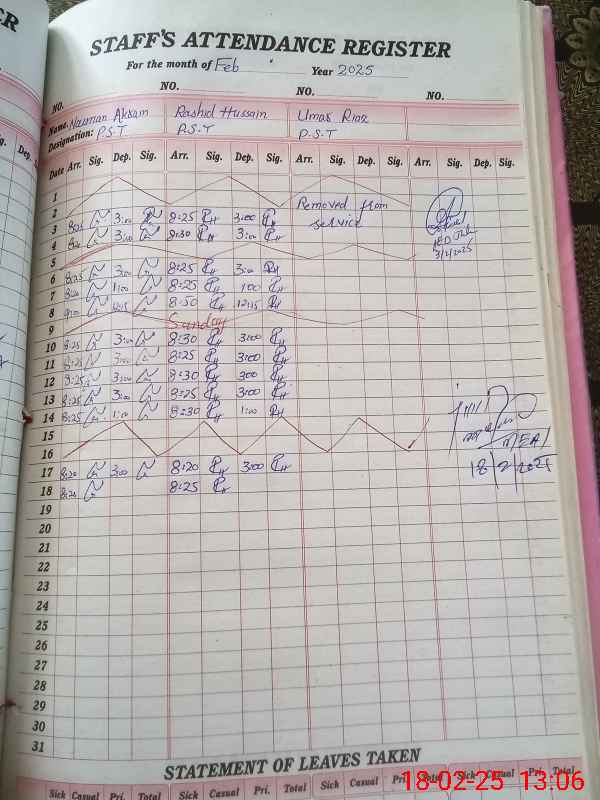 STAFF'S ATTENDANCE REGISTER
For the month of Feb Year 2025
NO. NO. NO. NO.
Name. Nauman Akram Rashid Hussain Umar Riaz
Designation: P.S.T P.S.T P.S.T
Date Arr. Sig. Dep. Sig. Arr. Sig. Dep. Sig. Arr. Sig. Dep. Sig. Arr. Sig. Dep. Sig.
1
2 Removed from
3 3:00 8:25 3:00 service
4 3:00 8:30 3:00
3/2/2025
5
6 8:25 3:00 8:25 3:00
7 8:20 1:00 8:25 1:00
8 9:00 8:50 12:15
9 Sunday
10 8:25 3:00 8:30 3:00
11 8:25 3:00 8:25 3:00
12 8:25 3:00 8:30 300
13 8:25 3:00 8:25 3:00
14 8:25 1:00 8:30 1:00
15
16
17 8:20 3:00 8:20 3:00
18/2/2025
18 8:20 8:25
19
20
21
22
23
24
25
26
27
28
29
30
31
STATEMENT OF LEAVES TAKEN
Sick Casual Pri. Total Sick Casual Pri. Total Sick Casual Pri. Total Sick Casual Pri. Total
18-02-25 13:06